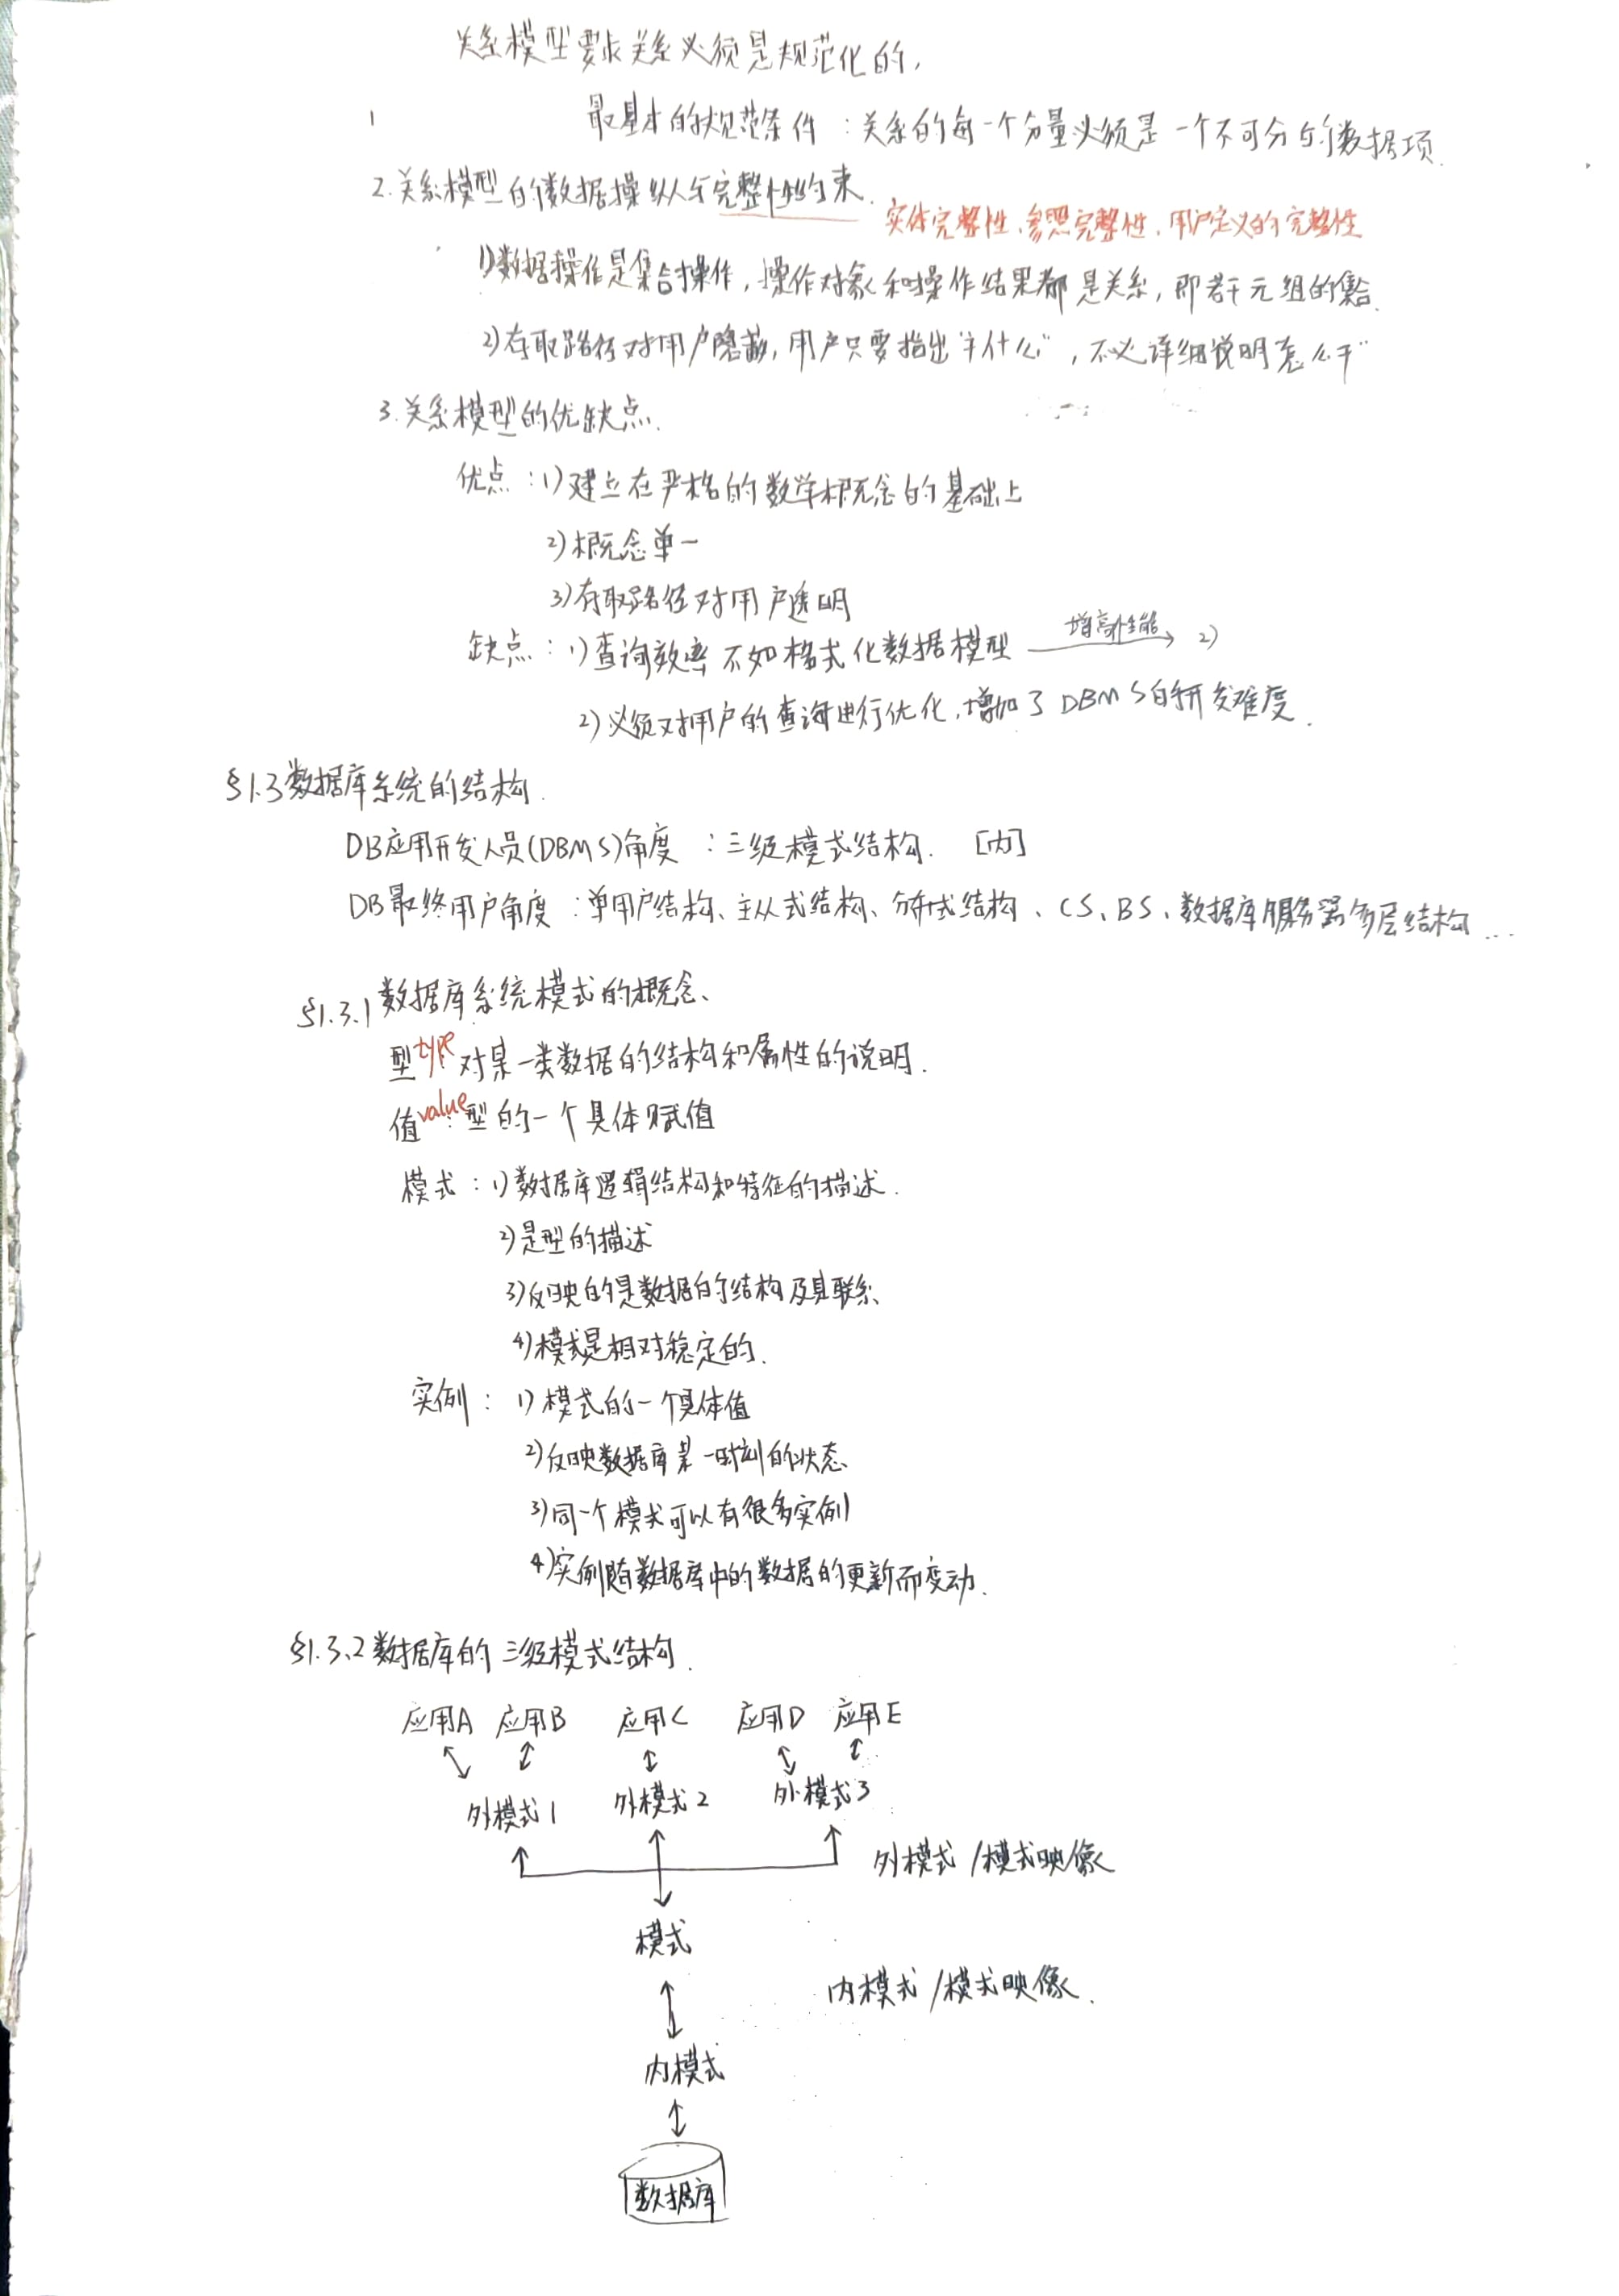 关系模型要求关系必须是规范化的,
最基本的规范条件:关系的每一个分量必须是一个不可分的数据项.
2.关系模型的数据操纵与完整性约束.
实体完整性、参照完整性、用户定义的完整性
1)数据操作是集合操作,操作对象和操作结果都是关系,即若干元组的集合.
2)存取路径对用户隐蔽,用户只要指出"干什么",不必详细说明"怎么干"
3.关系模型的优缺点.
优点:1)建立在严格的数学概念的基础上
2)概念单一
3)存取路径对用户透明
缺点:1)查询效率不如格式化数据模型 增高性能 2)
2)必须对用户的查询进行优化,增加了DBMS的开发难度.
§1.3数据库系统的结构.
DB应用开发人员(DBMS)角度:三级模式结构. [内]
DB最终用户角度:单用户结构、主从式结构、分布式结构、CS、BS、数据库服务器多层结构...
§1.3.1数据库系统模式的概念、
型type:对某一类数据的结构和属性的说明.
值value:型的一个具体赋值
模式:1)数据库逻辑结构和特征的描述.
2)是型的描述
3)反映的是数据的结构及其联系
4)模式是相对稳定的.
实例:1)模式的一个具体值
2)反映数据库某一时刻的状态
3)同一个模式可以有很多实例
4)实例随数据库中的数据的更新而变动.
§1.3.2数据库的三级模式结构.
应用A 应用B 应用C 应用D 应用E
外模式1 外模式2 外模式3
外模式/模式映像
模式
内模式/模式映像.
内模式
数据库